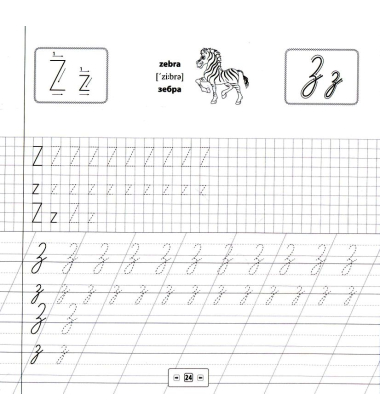 Z z
zebra
['zi:brə]
зебра
Z z
Z Z Z Z Z Z Z Z Z Z
z z z z z z z z z z
Z z Z z
Z Z Z Z Z Z Z Z Z Z Z
z z z z z z z z z z z z z
Z Z
z z
24